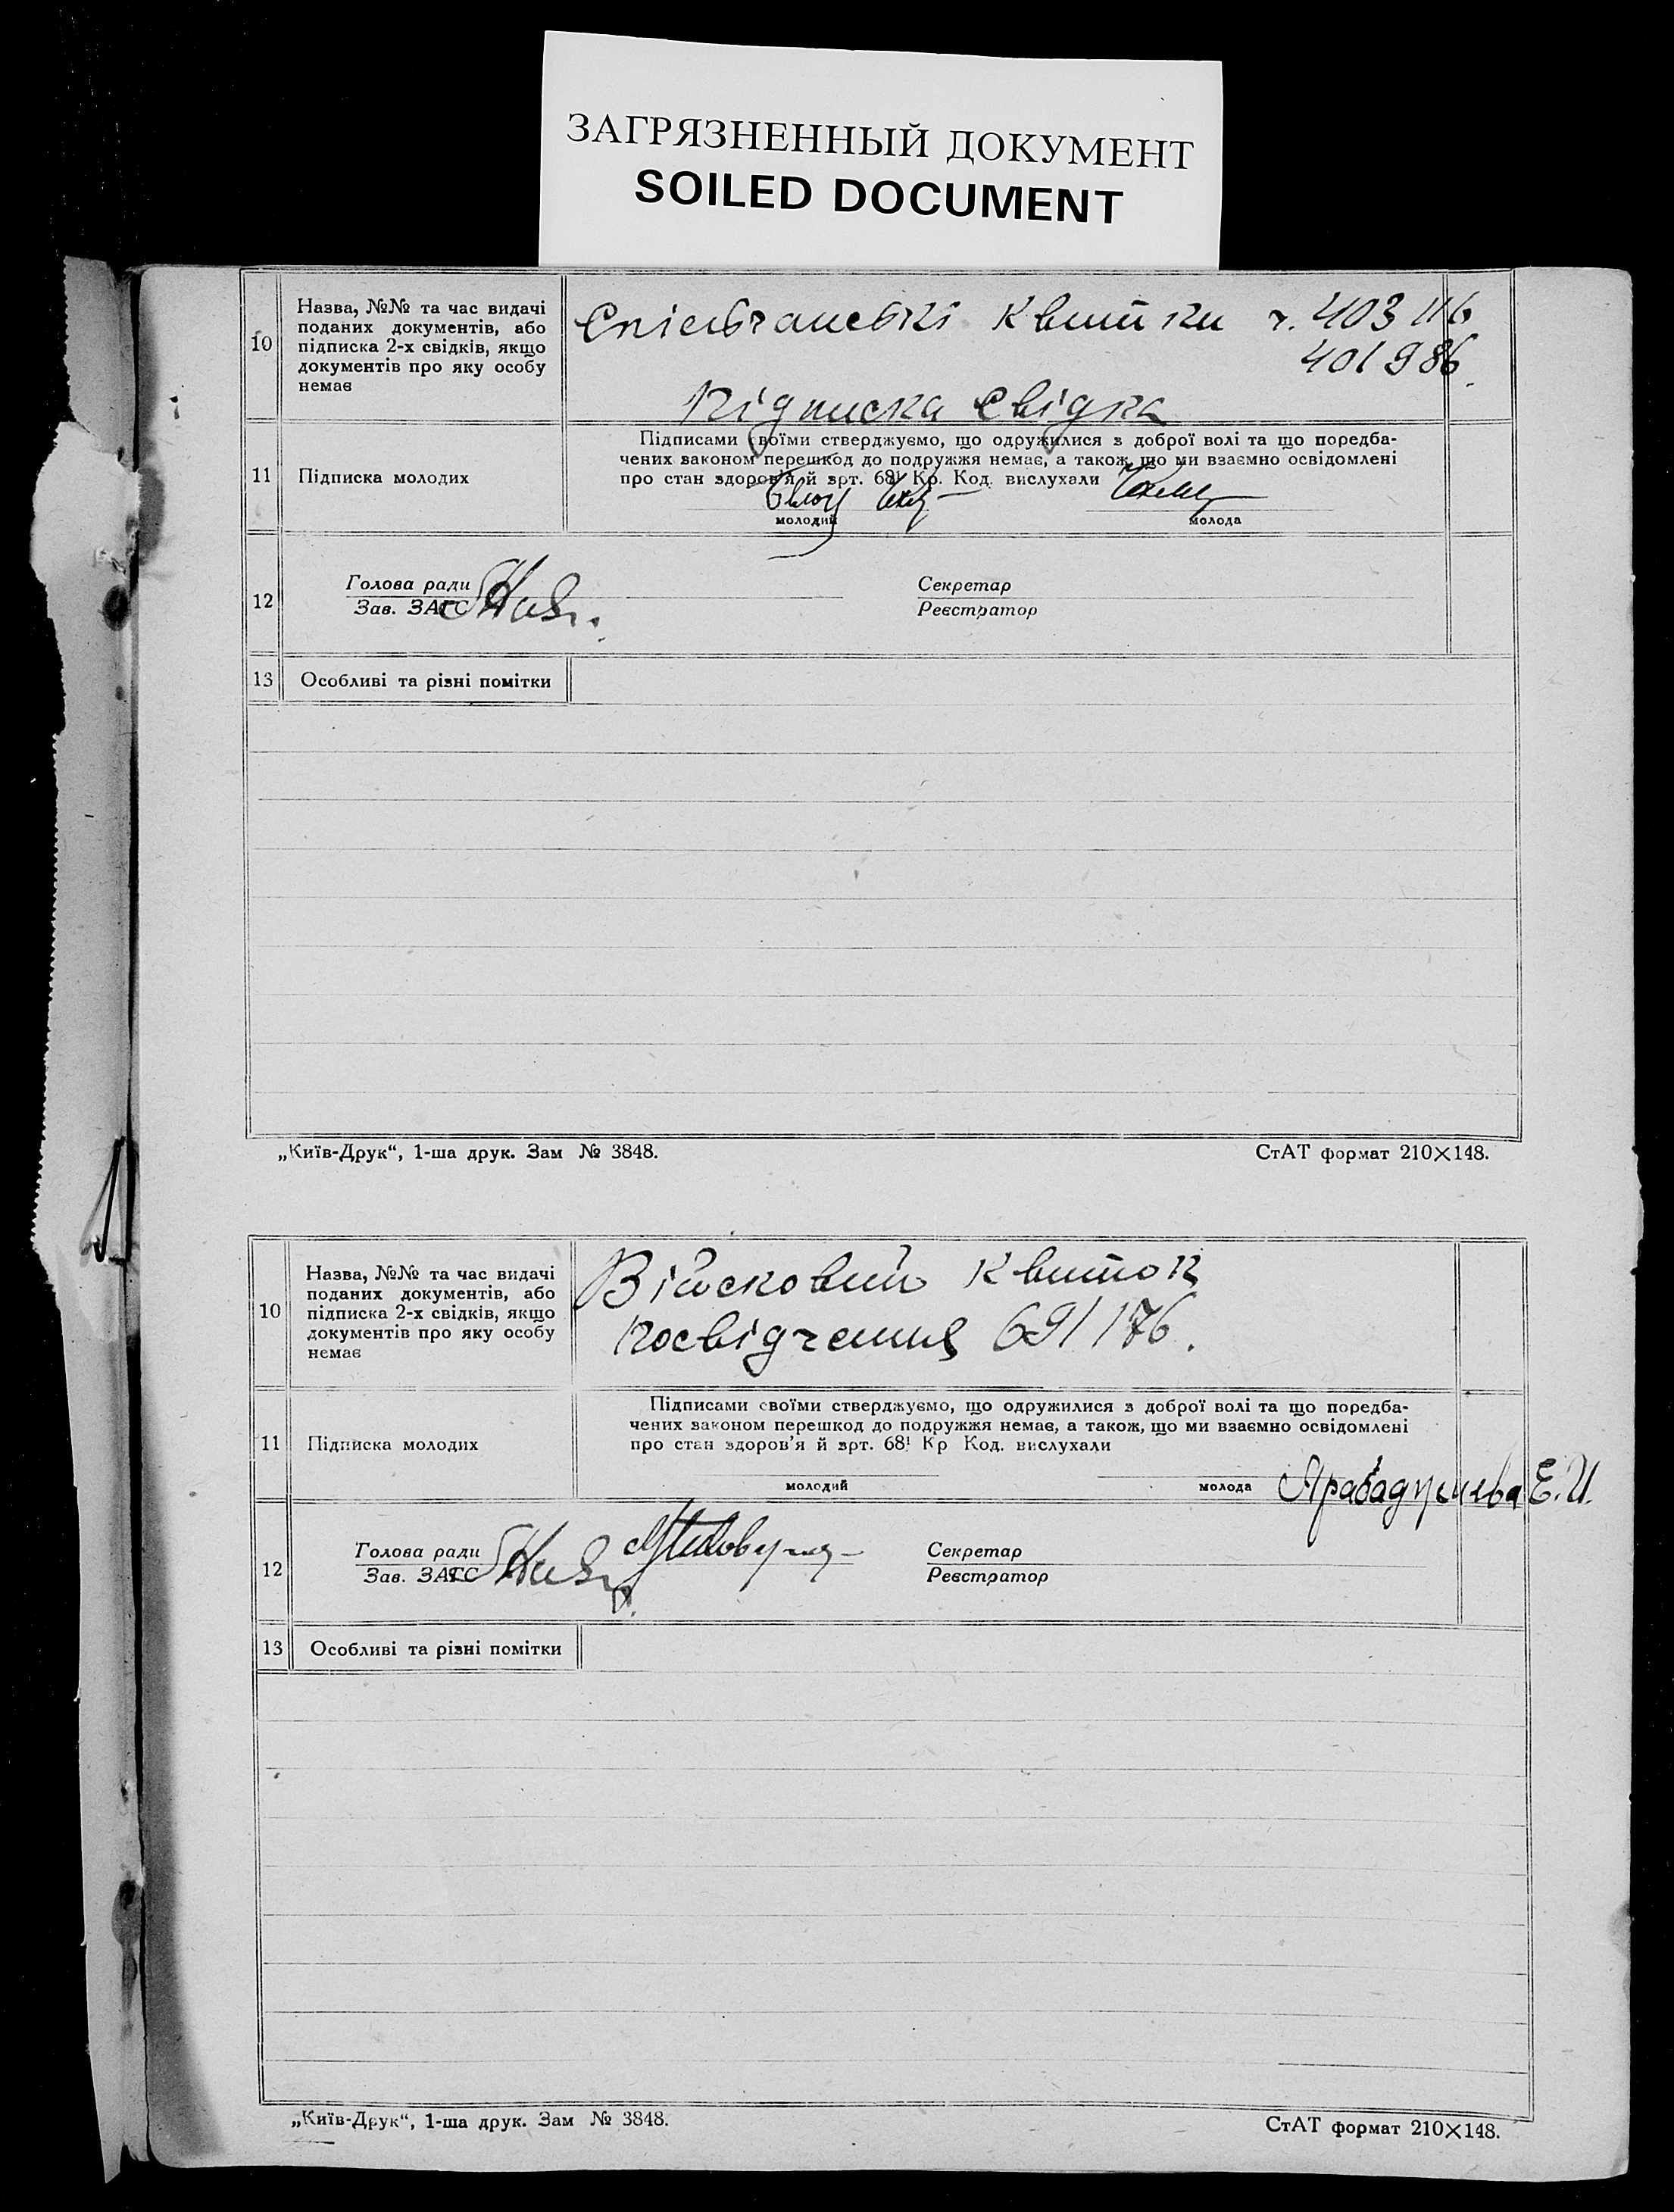 ЗАГРЯЗНЕННЫЙ ДОКУМЕНТ
SOILED DOCUMENT
10
Назва, №№ та час видачі
поданих документів, або
підписка 2-х свідків, якщо
документів про яку особу
немає
квитки ч. 403 116
401 986.
Підписка свідка
11
Підписка молодих
Підписами своїми стверджуємо, що одружилися з доброї волі та що поредба-
чених законом перешкод до подружжя немає, а також, що ми взаємно освідомлені
про стан здоров'я й арт. 68¹ Кр. Код. вислухали
молодий
молода
12
Голова ради
Зав. ЗАГС
Секретар
Реєстратор
13
Особливі та різні помітки
„Київ-Друк“, 1-ша друк. Зам № 3848.
СтАТ формат 210×148.
10
Назва, №№ та час видачі
поданих документів, або
підписка 2-х свідків, якщо
документів про яку особу
немає
Війсковий квиток
Посвідчення 691176.
11
Підписка молодих
Підписами своїми стверджуємо, що одружилися з доброї волі та що поредба-
чених законом перешкод до подружжя немає, а також, що ми взаємно освідомлені
про стан здоров'я й арт. 68¹ Кр Код. вислухали
молодий
молода
Е.И.
12
Голова ради
Зав. ЗАГС
Секретар
Реєстратор
13
Особливі та різні помітки
„Київ-Друк“, 1-ша друк. Зам № 3848.
СтАТ формат 210×148.